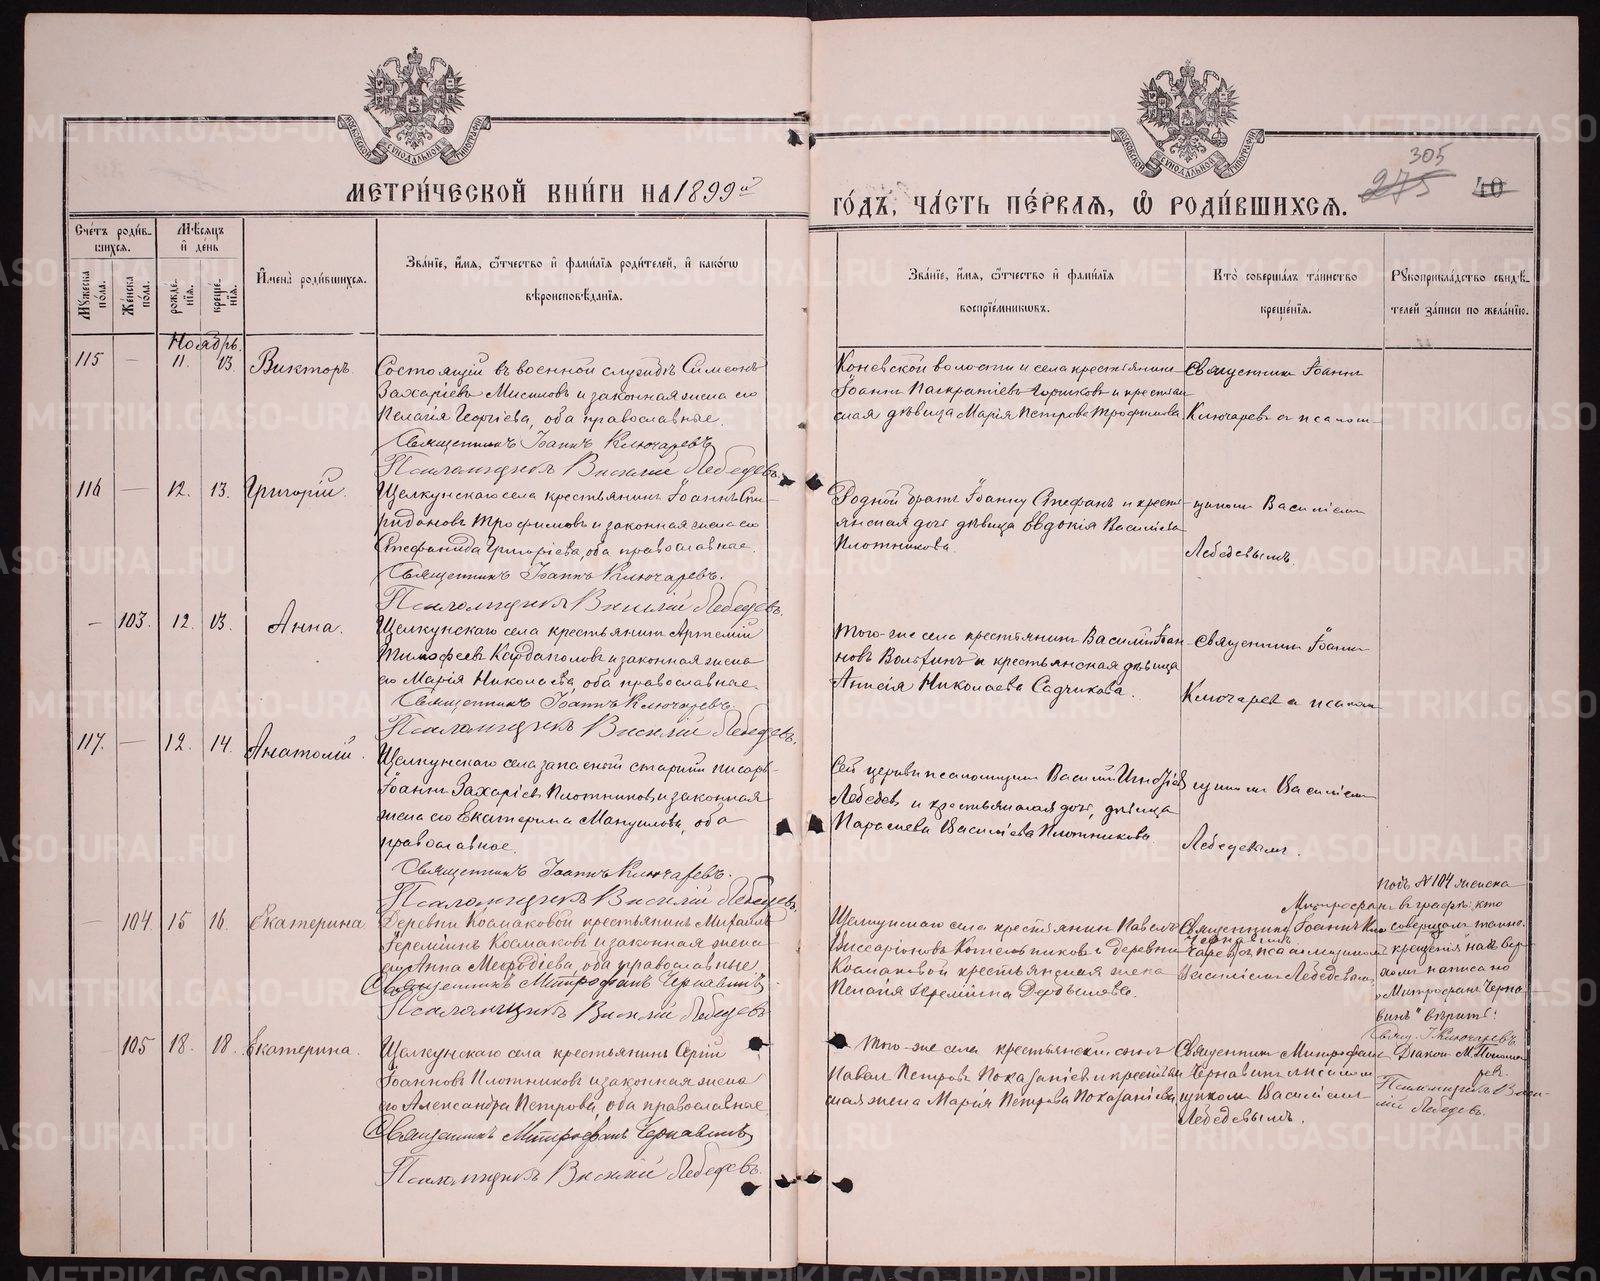 МОСКОВСКОЙ СѴНОДАЛЬНОЙ ТИПОГРАФІИ
МОСКОВСКОЙ СѴНОДАЛЬНОЙ ТИПОГРАФІИ
305
275 40
МЕТРИ́ЧЕСКОЙ КНИ́ГИ НА 1899й
ГО́ДЪ, ЧА́СТЬ ПЕ́РВАѦ, Ѡ РОДИ́ВШИХСѦ.
Сче́тъ роди́в-
шихся.
Мꙋ́жеска пола. Же́нска пола.
Мѣ́сяцъ и́ де́нь
рожде́-нія. креще́-нія.
И҆мена̀ роди́вшихся.
Зва́нїе, и́мя, ѻ҆́тчество и҆ фами́лїя роди́телей, и҆ како́гѡ
вѣроисповѣ́данїя.
Зва́нїе, и́мя, ѻ҆́тчество и҆ фами́лїя
воспрїе́мникѡвъ.
Кто̀ соверша́лъ та́инство
креще́нїя.
Рꙋкоприкла́дство свидѣ́-
телей за́писи по жела́нїю.
Ноябрь.
115 — 11. 13 Викторъ.
Состоящій въ военной службѣ Симеонъ
Захаріевъ Мисиловъ и законная жена его
Пелагія Георгіева, оба православные.
Священникъ Іоаннъ Ключаревъ
Псаломщикъ Василій Лебедевъ.
Коневской волости и села крестьянинъ
Іоаннъ Панкратіевъ и крестьян
ская дѣвица Марія Петрова Трофимова
Священникъ Іоаннъ
Ключаревъ съ псалом-
116 — 12. 13. Григорій.
Щелкунскаго села крестьянинъ Іоаннъ Спи-
ридоновъ Трофимовъ и законная жена его
Стефанида Григоріева, оба православные.
Священникъ Іоаннъ Ключаревъ.
Псаломщикъ Василій Лебедевъ.
Родной братъ Іоанну Стефанъ и кресть-
янская дочь дѣвица Евдокія Василіева
Плотникова.
щикомъ Василіемъ
Лебедевымъ.
— 103. 12. 13. Анна.
Щелкунскаго села крестьянинъ Артемій
Тимофеевъ Кардаполовъ и законная жена
его Марія Николаева, оба православные.
Священникъ Іоаннъ Ключаревъ.
Псаломщикъ Василій Лебедевъ.
Того-же села крестьянинъ Василій Іоан
новъ и крестьянская дѣвица
Николаева Садчикова.
Священникъ Іоаннъ
Ключаревъ съ псалом
117. — 12. 14. Анатолій.
Щелкунскаго села запасный старшій писарь
Іоаннъ Захаріевъ Плотниковъ и законная
жена его Екатерина Мануилова, оба
православные.
Священникъ Іоаннъ Ключаревъ.
Псаломщикъ Василій Лебедевъ.
Сей церкви псаломщикъ Василій
Лебедевъ и крестьянская дочь, дѣвица
Параскева Василіева Плотникова.
щикомъ Василіемъ
Лебедевымъ.
— 104. 15 16. Екатерина
Деревни Космаковой крестьянинъ Михаилъ
Іереміинъ Космаковъ и законная жена
его Анна Мефодіева, оба православные.
Священникъ Митрофанъ Чернавинъ
Псаломщикъ Василій Лебедевъ
Щелкунскаго села крестьянинъ Павелъ
Виссаріоновъ Котельниковъ и деревни
Космаковой крестьянская жена
Пелагія Іереміина Дербышева.
Митрофанъ
Священникъ Іоаннъ Клю
Чернавинъ
чаревъ съ псаломщикомъ
Василіемъ Лебедевымъ
Подъ №104 женска
въ графѣ: кто
совершалъ таинс.
крещенія на вер-
хомъ написано
„Митрофанъ Черна-
винъ“ вѣрить:
Свящ. І. Ключаревъ.
Діаконъ М. Пономаревъ.
Псаломщикъ Васи-
лій Лебедевъ.
— 105 18. 18. Екатерина.
Щелкунскаго села крестьянинъ Сергій
Іоанновъ Плотниковъ и законная жена
его Александра Петрова, оба православные
Священникъ Митрофанъ Чернавинъ
Псаломщикъ Василій Лебедевъ.
Того-же села крестьянскій сынъ
Павелъ Петровъ и крестьян
ская жена Марія Петрова
Священникъ Митрофанъ
Чернавинъ съ псалом
щикомъ Василіемъ
Лебедевымъ.
METRIKI.GASO-URAL.RU